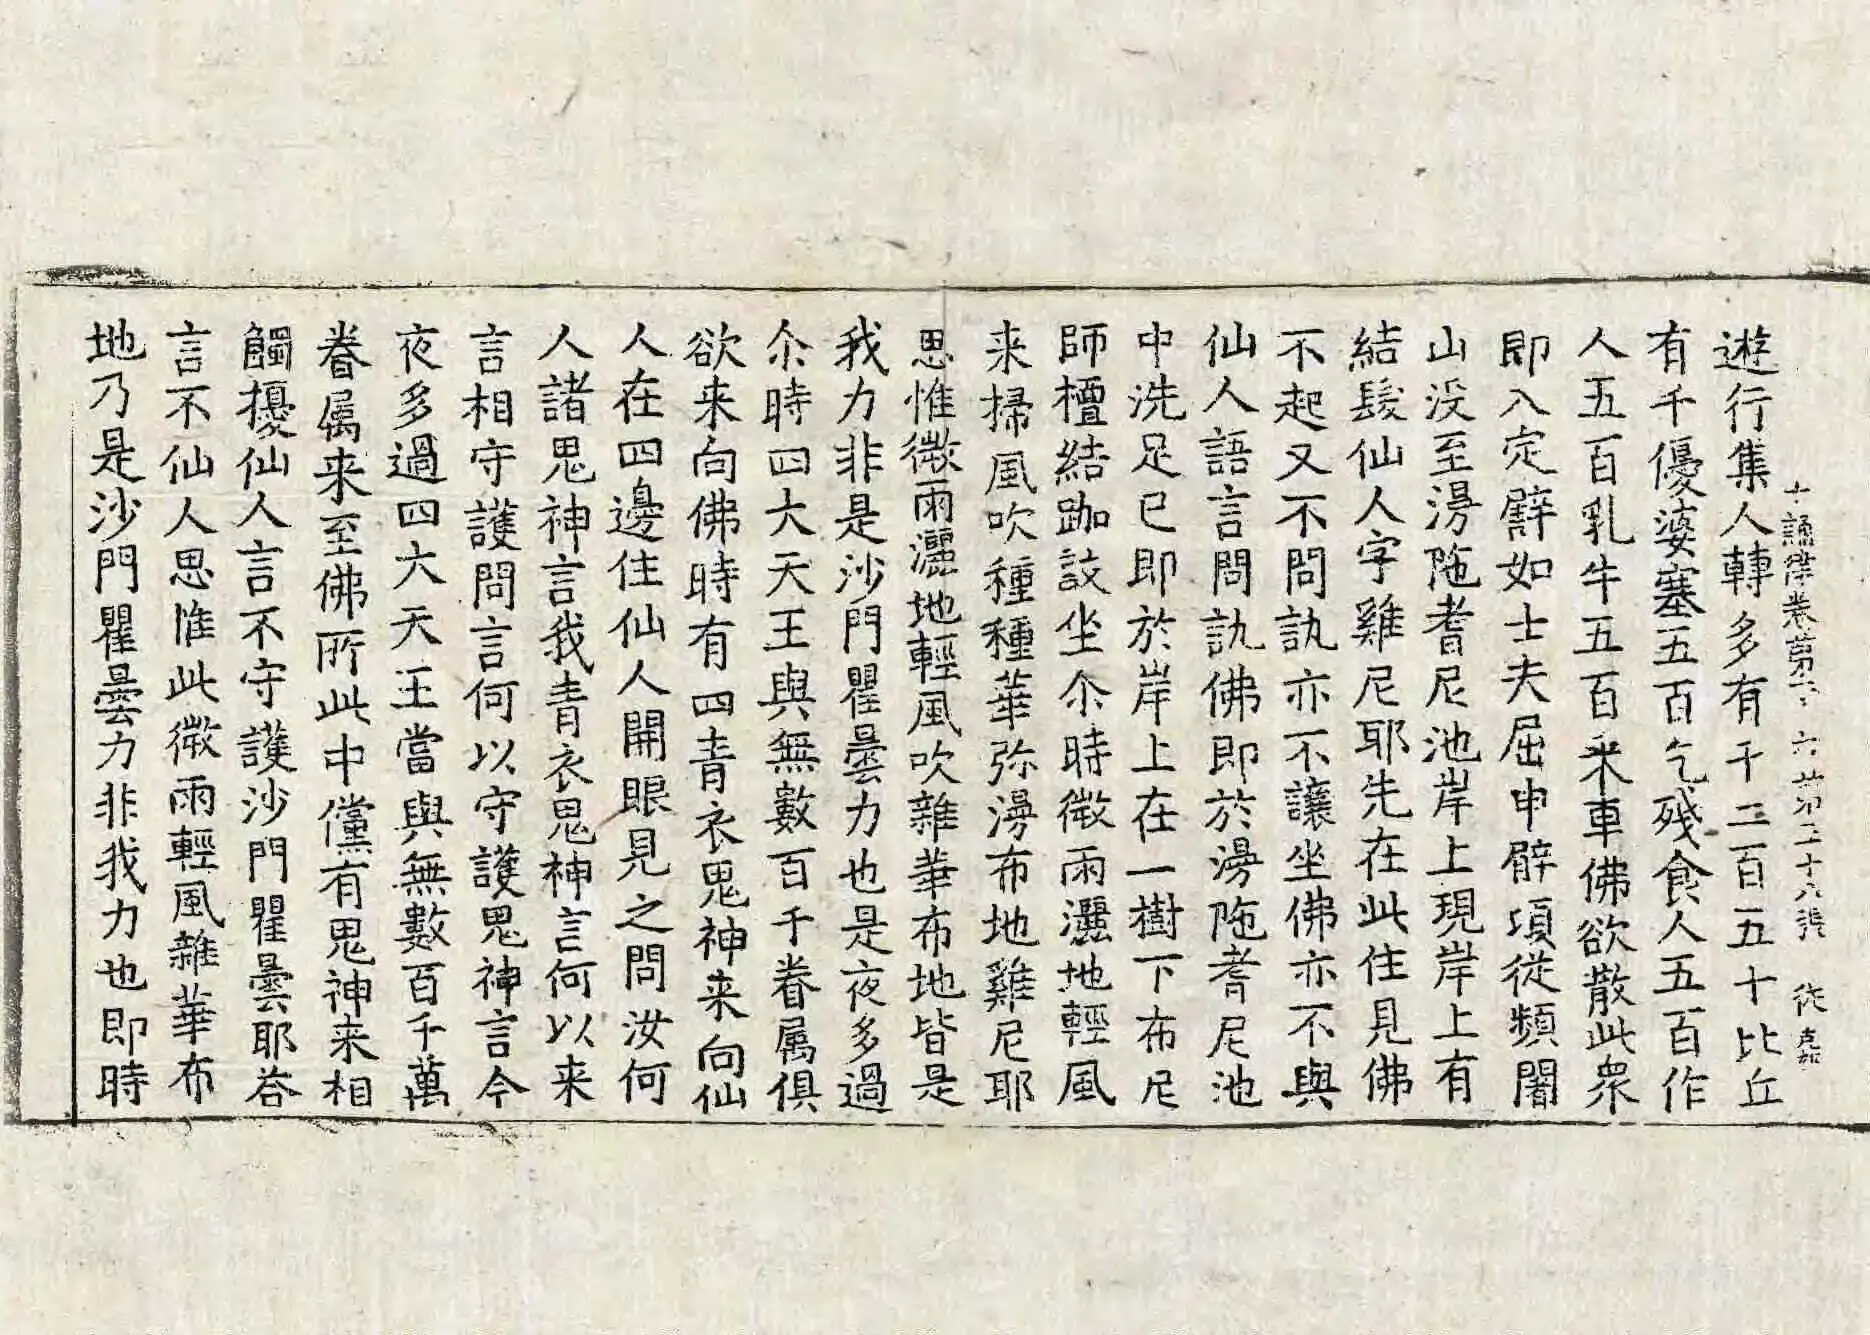 十誦律卷第二六 第二十六張 従
遊行集人轉多有千二百五十比丘
有千優婆塞五百乞残食人五百作
人五百乳牛五百乘車佛欲散此衆
即入定譬如士夫屈申臂項従頻闍
山没至漫陁耆尼池岸上現岸上有
結髮仙人字雞尼耶先在此住見佛
不起又不問訊亦不讓坐佛亦不與
仙人語言問訊佛即於漫陁耆尼池
中洗足已即於岸上在一樹下布尼
師檀結跏趺坐尒時微雨灑地輕風
来掃風吹種種華弥漫布地雞尼耶
思惟微雨灑地輕風吹雜華布地皆是
我力非是沙門瞿曇力也是夜多過
尒時四大天王與無數百千眷属俱
欲来向佛時有四青衣鬼神来向仙
人在四邊住仙人開眼見之問汝何
人諸鬼神言我青衣鬼神言何以来
言相守護問言何以守護鬼神言今
夜多過四大天王當與無數百千萬
眷属来至佛所此中儻有鬼神来相
觸擾仙人言不守護沙門瞿曇耶荅
言不仙人思惟此微雨輕風雜華布
地乃是沙門瞿曇力非我力也即時